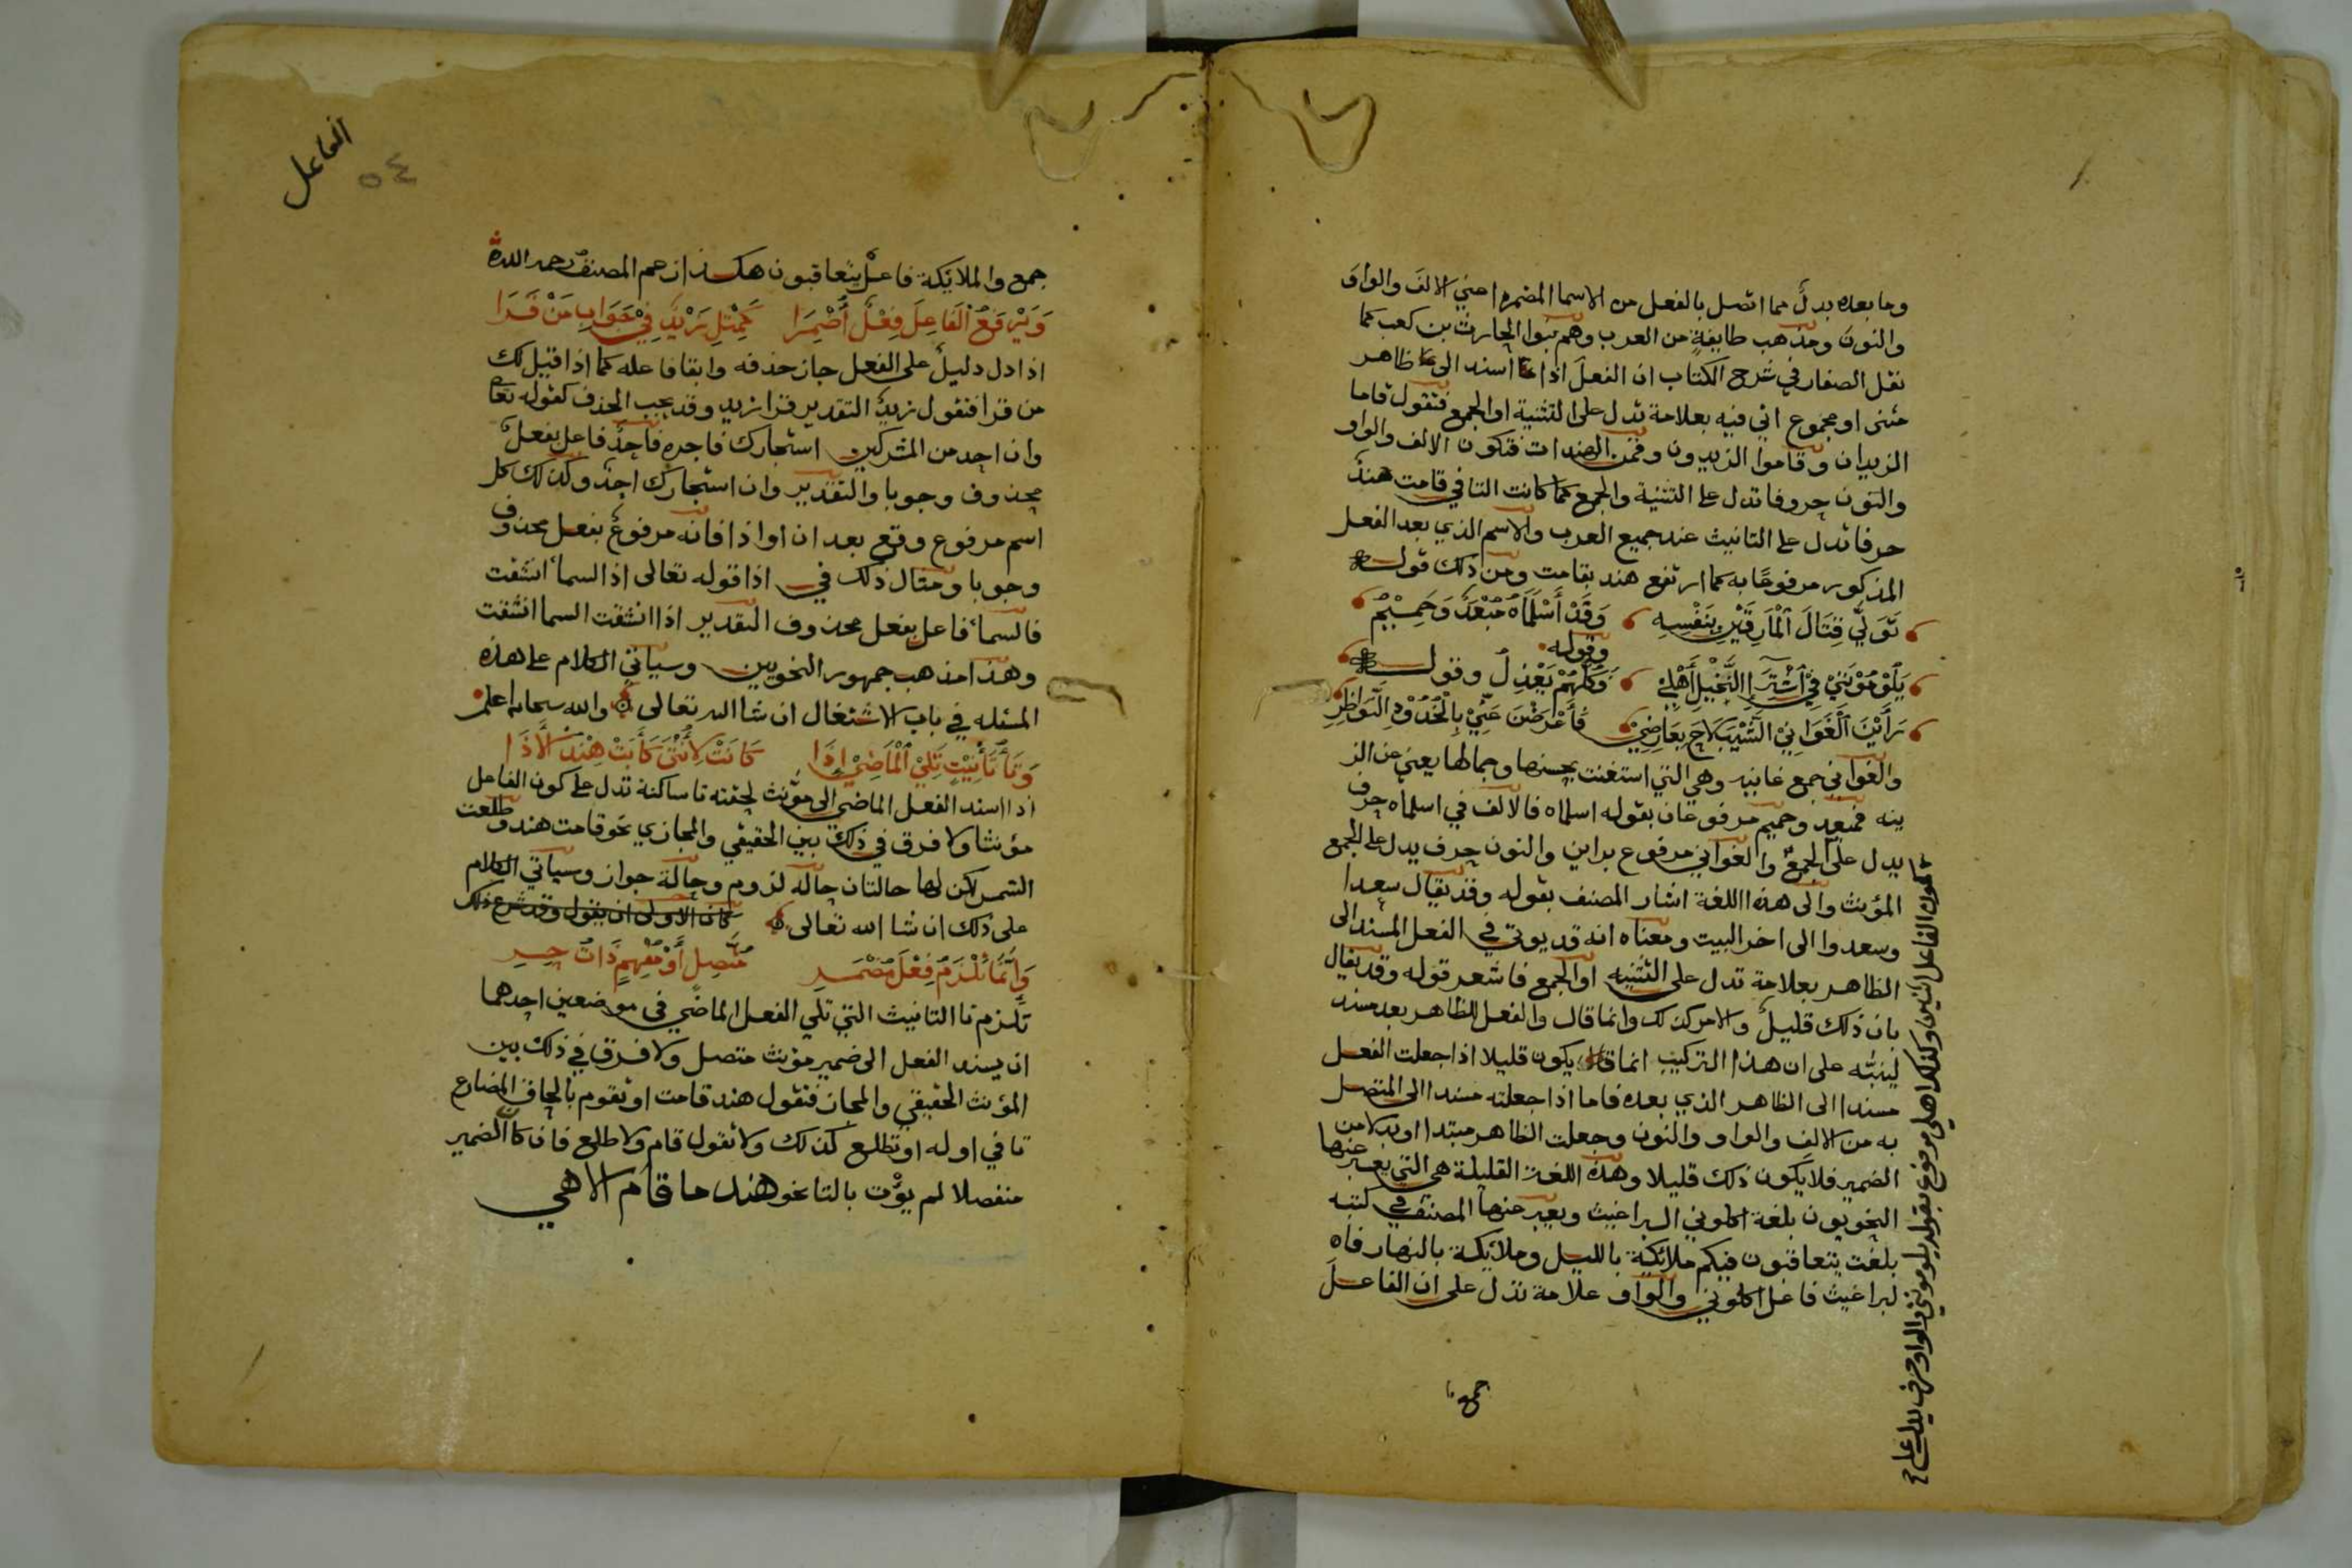 وما بعده بدلٌ مما اتصل بالفعل من الاسما المضمره اعني الالف والواو
والنون ومذهب طايفةٍ من العرب وهم بنوا الحارث بن كعب كما
نقل الصفار في شرح الكتاب ان الفعل اذا اسند الى ظاهر
مثنى او مجموع اتي فيه بعلامة تدل على التثنية او الجمع فتقول قاما
الزيدان وقاموا الزيدون وقمن الهندات فتكون الالف والواو
والنون حروفا تدل على التثنية والجمع كما كانت التا في قامت هندٌ
حرفا تدل على التانيث عند جميع العرب والاسم الذي بعد الفعل
المذكور مرفوعًا به كما ارتفع هند بقامت ومن ذلك قوله
تَوَلَّي قِتَالَ ٱلْمَارِقِيْنَ بِنَفْسِهِ وَقَدْ أَسْلَمَاهُ مُبْعَدٌ وَحَمِيْمُ
وقوله
يَلُوْمُوْنَنِيْ فِي ٱشْتِرَاءِ ٱلنَّخِيْلِ أَهْلِيْ وَكُلُّهُمْ يَعْذِلُ وقوله
رَأَيْنَ ٱلْغَوَانِيْ ٱلشَّيْبَ لَاحَ بِعَارِضِيْ فَأَعْرَضْنَ عَنِّيْ بِالْخُدُوْدِ ٱلنَّوَاظِرِ
والغواني جمع غانيه وهي التي استغنت بحسنها وجمالها يعني عن الز
ينه فمبعد وحميم مرفوعان بقوله اسلماه فالالف في اسلماه حرف
يدل على الجمع والغواني مرفوع براين والنون حرف يدل على الجمع
المؤنث والى هذه اللغة اشار المصنف بقوله وقد يقال سعدا
وسعدوا الى اخر البيت ومعناه انه قد يوتي في الفعل المسند الى
الظاهر بعلامة تدل على التثنيه او الجمع فاشعر قوله وقد يقال
بان ذلك قليلٌ والامر كذلك وانما قال والفعل للظاهر بعد مسند
لينبّه على ان هذا التركيب انما يكون قليلا اذا جعلت الفعل
مسندا الى الظاهر الذي بعده فاما اذا جعلته مسندا الى المتصل
به من الالف والواو والنون وجعلت الظاهر مبتدا او بدلا من
الضمير فلا يكون ذلك قليلا وهذه اللغة القليلة هي التي يعبر عنها
النحويون بلغة اكلوني البراغيث ويعبر عنها المصنف في كتبه
بلغت يتعاقبون فيكم ملائكة بالليل وملائكة بالنهار فاه
لبراغيث فاعل اكلوني والواو علامة تدل على ان الفاعل
جمع
كون الفاعل اثنين وكذلك اهلي مرفوع بقوله يلومونني والواو حرف يدل على
الفاعل
٥٤
جمع والملائكة فاعل يتعاقبون هكذا زعم المصنف رحمه الله
وَيَرْفَعُ ٱلْفَاعِلَ فِعْلٌ أُضْمِرَا كَمِثْلِ زَيْدٌ فِيْ جَوَابِ مَنْ قَرَا
اذا دل دليلٌ على الفعل جاز حذفه وابقا فاعله كما اذا قيل لك
من قرا فتقول زيدٌ التقدير قرا زيد وقد يجب الحذف كقوله تعا
وان احد من المشركين استجارك فاجره فاحدٌ فاعل بفعل
محذوف وجوبا والتقدير وان استجارك احدٌ وكذلك كل
اسم مرفوع وقع بعد ان او اذا فانه مرفوعٌ بفعل محذوف
وجوبا ومثال ذلك في اذا قوله تعالى اذا السماء انشقت
فالسماء فاعل بفعل محذوف التقدير اذا انشقت السما انشقت
وهذا مذهب جمهور النحويين وسياتي الكلام على هذه
المسئله في باب الاشتغال ان شا الله تعالى والله سبحانه اعلم
وَتَاءُ تَأْنِيْثٍ تَلِيْ ٱلْمَاضِيْ إِذَا كَانَتْ لِأُنْثَى كَأَبَتْ هِنْدُ ٱلْأَذَا
اذا اسند الفعل الماضي الى مؤنث لحقته تا ساكنة تدل على كون الفاعل
مؤنثا ولا فرق في ذلك بين الحقيقي والمجازي نحو قامت هند وطلعت
الشمس لكن لها حالتان حالة لزوم وحالة جواز وسياتي الكلام
على ذلك ان شا الله تعالى كان الاولى ان يقول وقد شرع ذلك
وَإِنَّمَا تَلْزَمُ فِعْلَ مُضْمَرِ مُتَّصِلٍ أَوْ مُفْهِمٍ ذَاتَ حِرِ
تلزم تا التانيث التي تلي الفعل الماضي في موضعين احدهما
ان يسند الفعل الى ضمير مؤنث متصل ولا فرق في ذلك بين
المؤنث الحقيقي والمجاز فتقول هند قامت او تقوم بالحاق المضارع
تا في اوله او تطلع كذلك ولا تقول قام ولا طلع فان كان الضمير
منفصلا لم يؤت بالتا نحو هند ما قام الا هي